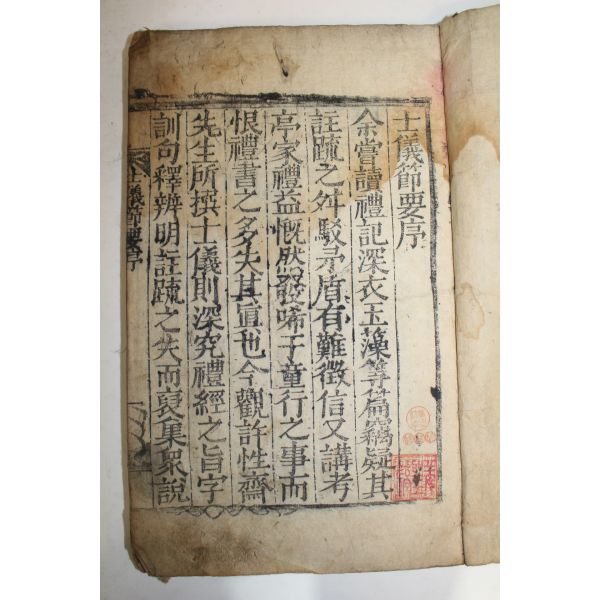 士儀節要序
余嘗讀禮記深衣玉藻等篇竊疑其
註疏之舛駁矛盾有難徵信又講考
亭家禮益慨然發唏于童行之事而
恨禮書之多失其眞也今觀許性齋
先生所撰士儀則深究禮經之旨字
訓句釋辨明註疏之失而裒集衆說
士儀節要序